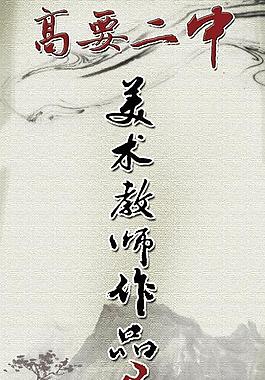 高要二中
美术教师作品